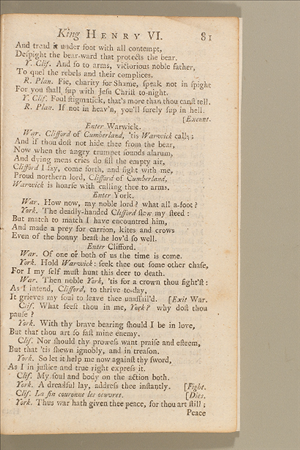 King HENRY VI. 81
And tread it under foot with all contempt,
Despight the bear-ward that protects the bear.
Y. Clif. And so to arms, victorious noble father,
To quel the rebels and their complices.
R. Plan. Fie, charity for Shame, speak not in spight
For you shall sup with Jesu Christ to-night.
Y. Clif. Foul stigmatick, that's more than thou canst tell.
R. Plan. If not in heav'n, you'll surely sup in hell.
[Exeunt.
Enter Warwick.
War. Clifford of Cumberland, 'tis Warwick calls;
And if thou dost not hide thee from the bear,
Now when the angry trumpet sounds alarum,
And dying mens cries do fill the empty air,
Clifford I say, come forth, and fight with me,
Proud northern lord, Clifford of Cumberland,
Warwick is hoarse with calling thee to arms.
Enter York.
War. How now, my noble lord? what all a-foot?
York. The deadly-handed Clifford slew my steed:
But match to match I have encountred him,
And made a prey for carrion, kites and crows
Even of the bonny beast he lov'd so well.
Enter Clifford.
War. Of one or both of us the time is come.
York. Hold Warwick: seek thee out some other chase,
For I my self must hunt this deer to death.
War. Then noble York, 'tis for a crown thou fight'st:
As I intend, Clifford, to thrive to-day,
It grieves my soul to leave thee unassail'd. [Exit War.
Clif. What seest thou in me, York? why dost thou
pause?
York. With thy brave bearing should I be in love,
But that thou art so fast mine enemy.
Clif. Nor should thy prowess want praise and esteem,
But that 'tis shewn ignobly, and in treason.
York. So let it help me now against thy sword,
As I in justice and true right express it.
Clif. My soul and body on the action both.
York. A dreadful lay, address thee instantly. [Fight.
Clif. La fin couronne les oeuvres. [Dies.
York. Thus war hath given thee peace, for thou art still;
Peace